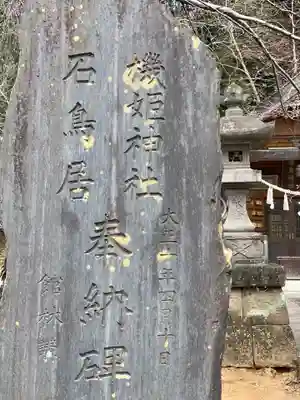 機姫神社
石鳥居
奉納碑
大正一年四月十日